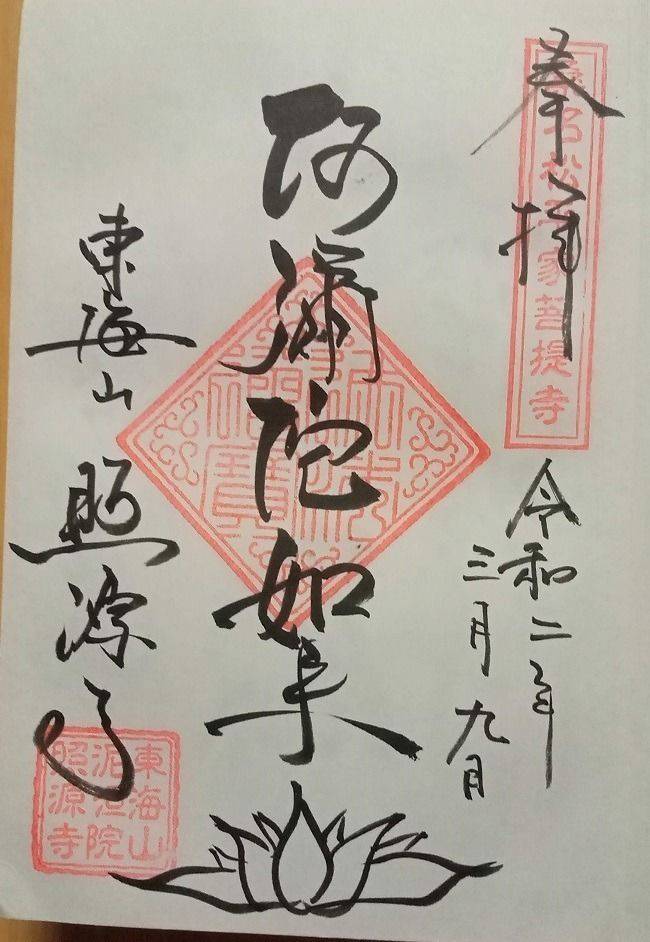 奉拝
桑名松平家菩提寺
令和二年
三月九日
阿彌陀如来
東海山 照源寺
東海山
泥洹院
照源寺